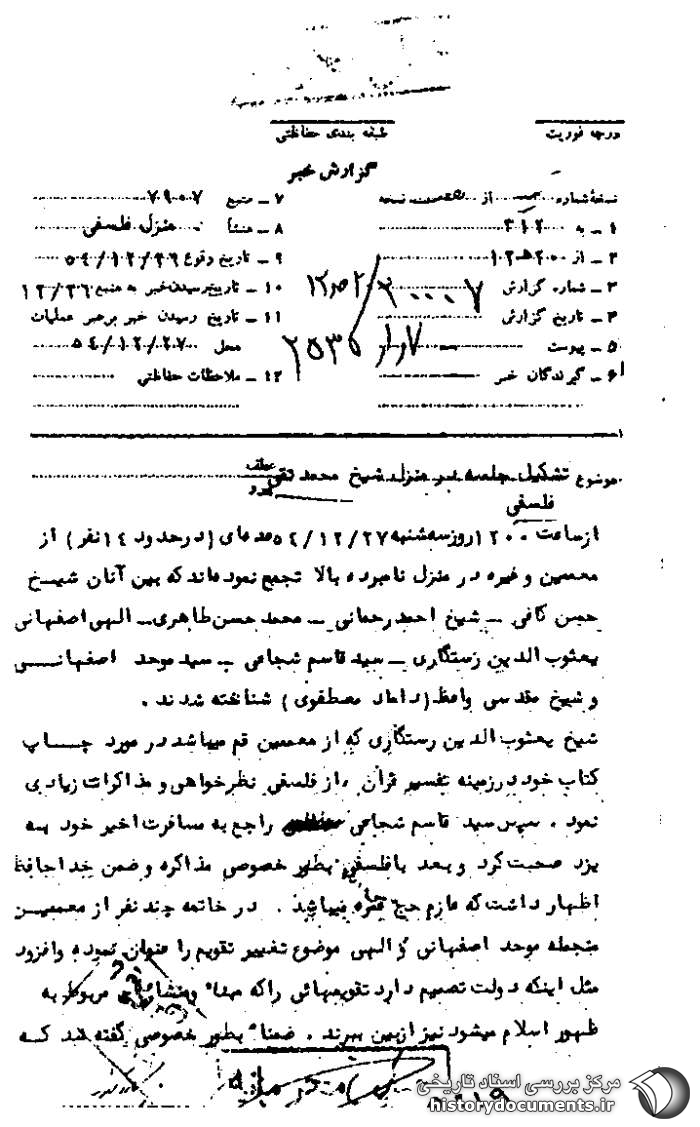 درجه فوریت
طبقه بندی حفاظتی
گزارش خبر
نسخهٔ شماره از نسخه
۱ ـ به ۳۱۲
۲ ـ از ۲۰ ه‍ ۱۲
۳ ـ شماره گزارش
۴ ـ تاریخ گزارش
۵ ـ پیوست
۶ ـ گیرندگان خبر
۷ ـ منبع ۷۹۰۷
۸ ـ منشأ منزل فلسفی
۹ ـ تاریخ وقوع ۵۴/۱۲/۲۶
۱۰ ـ تاریخ رسیدن خبر به منبع ۱۲/۲۶
۱۱ ـ تاریخ رسیدن خبر برهبر عملیات
محل ۵۴/۱۲/۲۷
۱۲ ـ ملاحظات حفاظتی
موضوع تشکیل جلسه در منزل شیخ محمد تقی
فلسفی
از ساعت ۱۲۰۰ روز سه شنبه ۵۴/۱۲/۲۷ عده‌ای (در حدود ۱۴ نفر) از
معممین و غیره در منزل نامبرده بالا تجمع نموده‌اند که بین آنان شیخ
حسن کافی ـ شیخ احمد رحمانی ـ محمد حسن طاهری ـ الهی اصفهانی
یعقوب الدین رستگاری ـ سید قاسم شجاعی ـ سید موحد اصفهانی
و شیخ مقدسی واعظ (داماد مصطفوی) شناخته شدند .
شیخ یعقوب الدین رستگاری که از معممین قم میباشد در مورد چاپ
کتاب خود در زمینه تفسیر قرآن ، از فلسفی نظرخواهی و مذاکرات زیادی
نمود . سپس سید قاسم شجاعی راجع به مسافرت اخیر خود به
یزد صحبت کرد و بعد با فلسفی بطور خصوصی مذاکره و ضمن خداحافظی
اظهار داشت که عازم حج عمره میباشد . در خاتمه چند نفر از معممین
منجمله موحد اصفهانی و الهی موضوع تغییر تقویم را عنوان نموده و افزود
مثل اینکه دولت تصمیم دارد تقویمهائی را که مبداء و منشاء مربوط به
ظهور اسلام میشود نیز از بین ببرند . ضمناً بطور خصوصی گفته شد که
مرکز بررسی اسناد تاریخی
historydocuments.ir